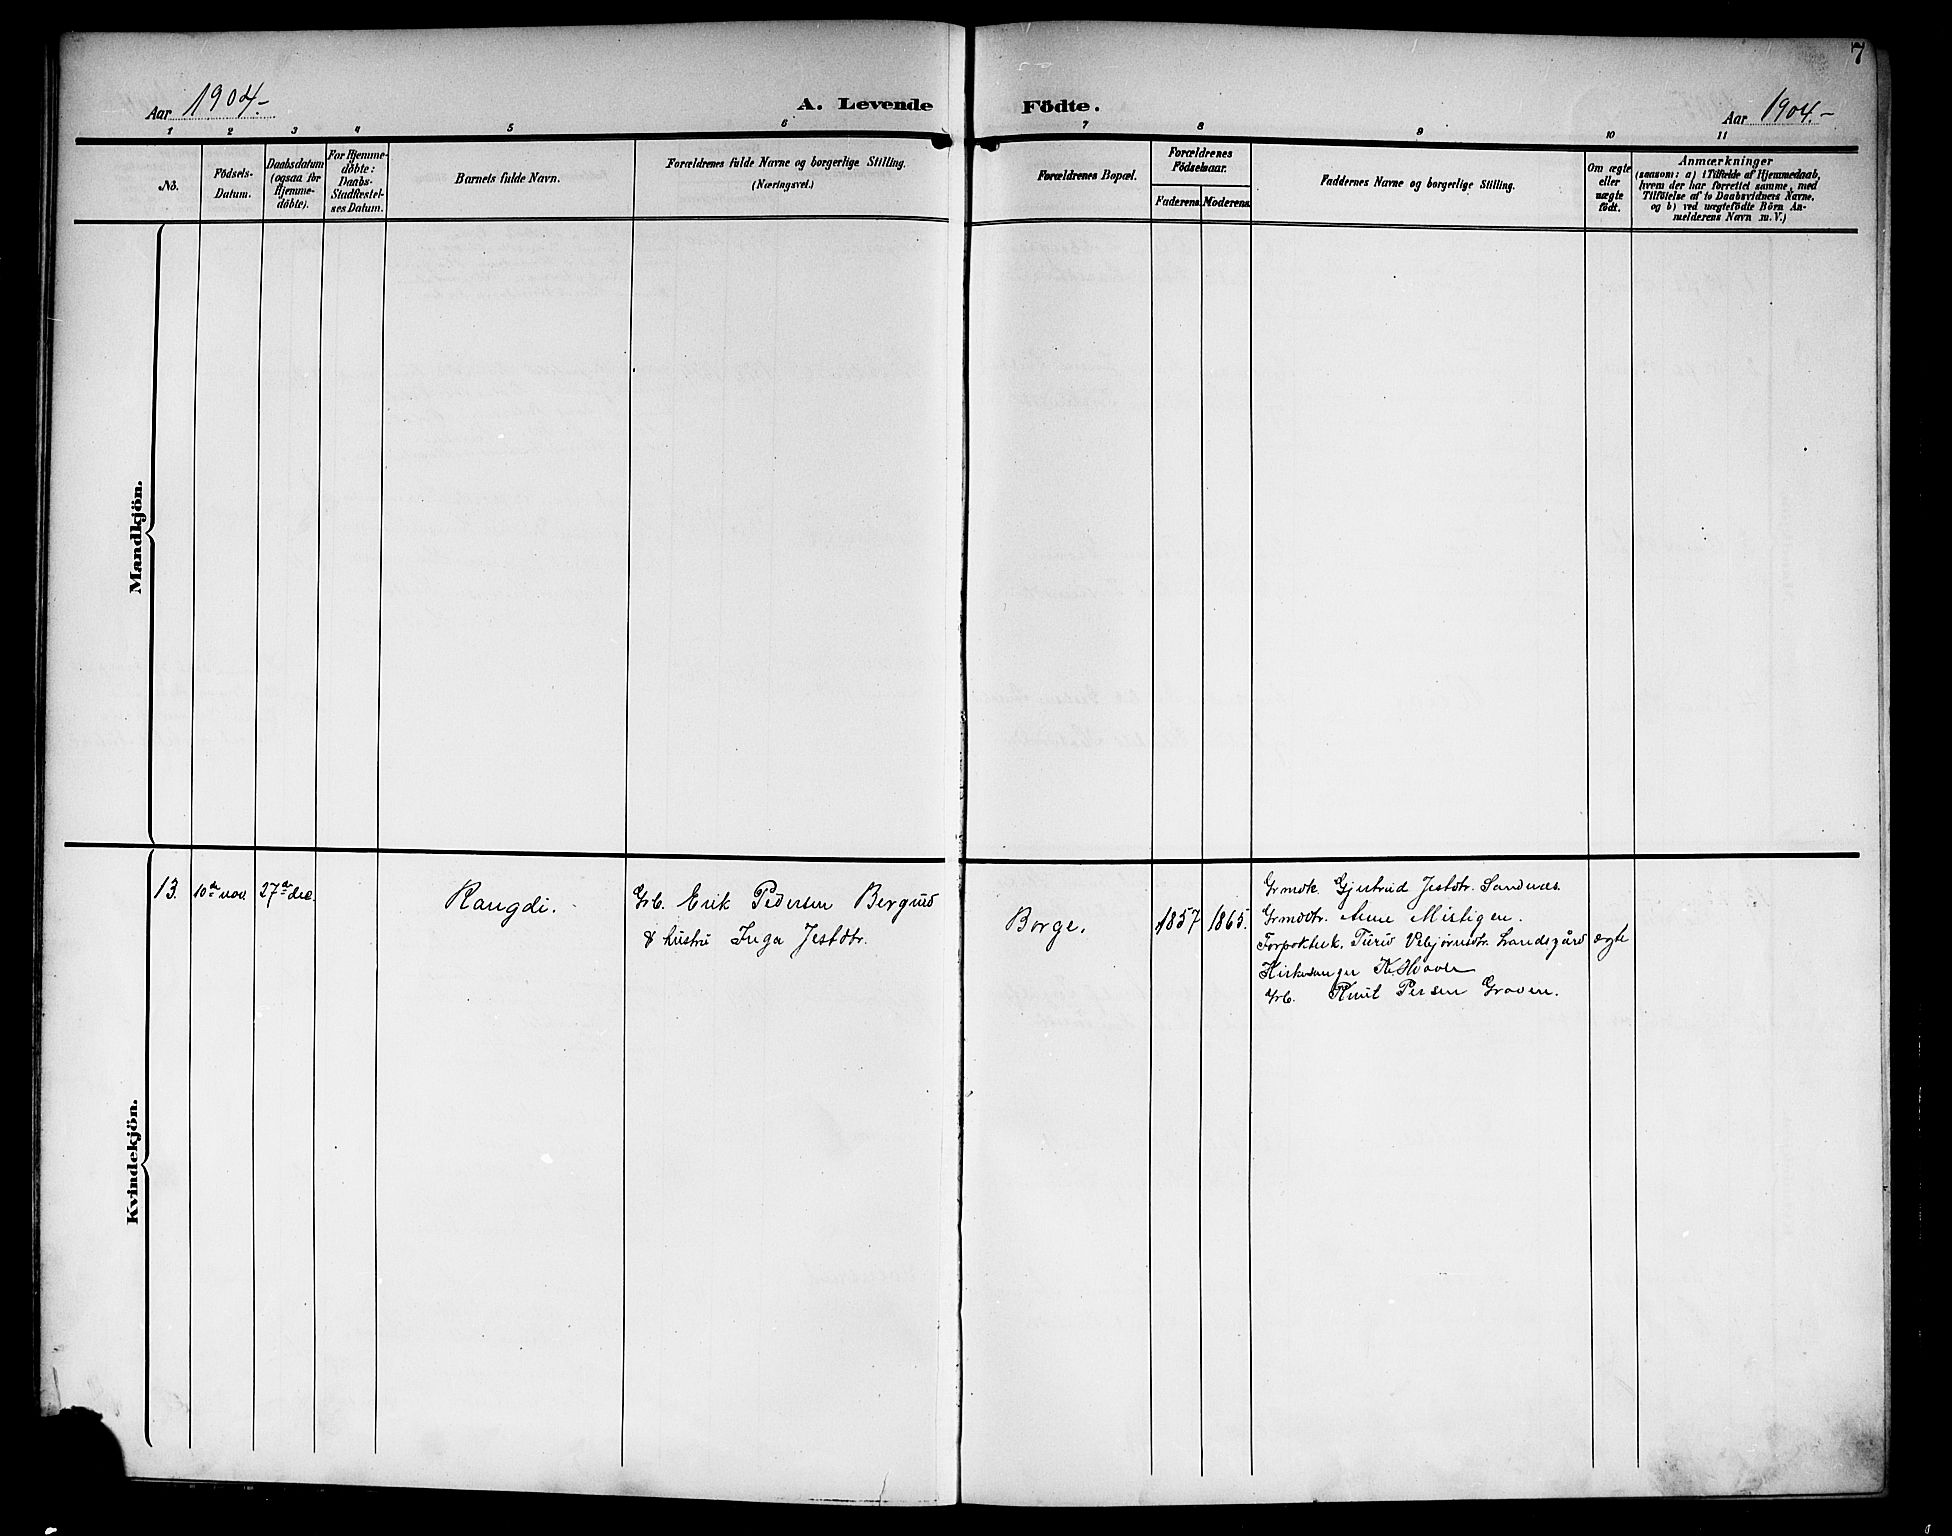 7
Aar 1904.-
A. Levende
Födte.
Aar 1904.-
1 2 3 4 5 6 7 8 9 10 11
No.
Födsels-
Datum.
Daabsdatum
(ogsaa for
Hjemme-
döbte).
For Hjemme-
döbte:
Daabs-
Stadfæstel-
ses Datum.
Barnets fulde Navn.
Forældrenes fulde Navne og borgerlige Stilling.
(Næringsvei.)
Forældrenes Bopæl.
Forældrenes
Födselsaar.
Faderens.
Moderens.
Faddernes Navne og borgerlige Stilling.
Om ægte
eller
uægte
födt.
Anmærkninger
(saasom: a) i Tilfælde af Hjemmedaab,
hvem der har forrettet samme, med
Tilföielse af to Daabsvidners Navne,
og b) ved uægtefödte Börn An-
melderens Navn m.V.)
Mandkjön.
Kvindekjön.
13. 10de nov. 27de dec.
Rangdi.
Grb. Erik Pedersen Bergrud
& hustru Inga Jestdtr.
Borge.
1857 1865.
Grmdk. Gjertrud Jestdtr. Sandnes.
Grmdtr. Anne Mistigen.
Forpaktek. Turid Vebjørnsdtr. Landsgård
Kirkesanger K.
Grb. Knut Persen Graven.
ægte